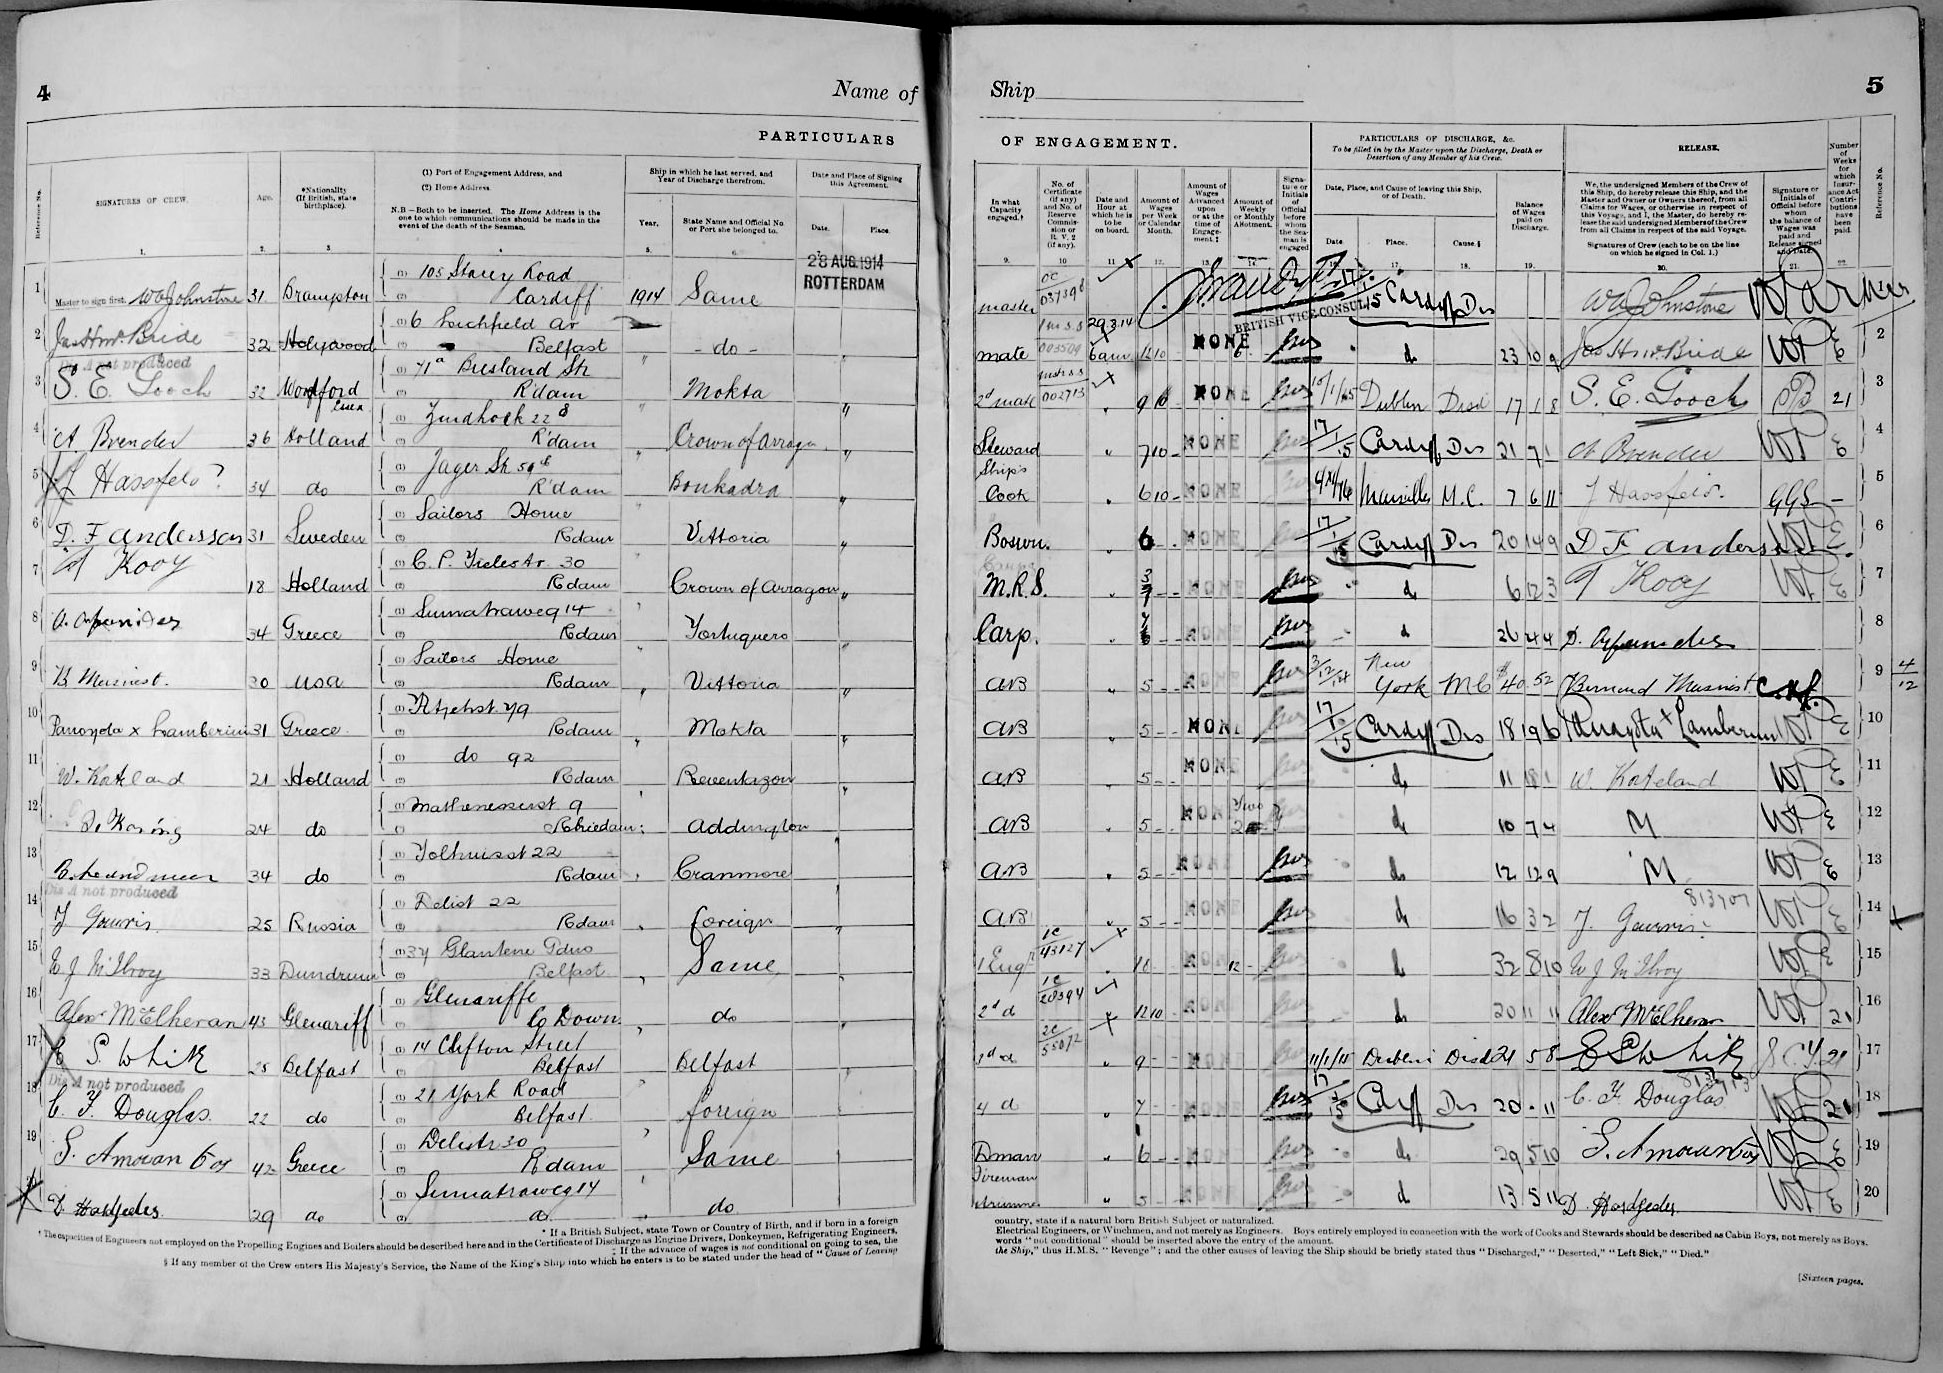 4
Name of
PARTICULARS
Reference No.
SIGNATURES OF CREW.
Age.
*Nationality
(If British, state
birthplace).
(1) Port of Engagement Address, and
(2) Home Address.
N.B—Both to be inserted. The Home Address is the
one to which communications should be made in the
event of the death of the Seaman.
Ship in which he last served, and
Year of Discharge therefrom.
Year.
State Name and Official No.
or Port she belonged to.
Date and Place of Signing
this Agreement.
Date.
Place.
1.
2.
3.
4.
5.
6.
28 AUG. 1914
ROTTERDAM
1 Master to sign first. W Johnstone 31. Brampton (1) 105 Stacey Road
(2) Cardiff 1914 Same
2 Jas H McBride 32 Holywood (1) 6 Lichfield Av
(2) Belfast " - do -
Dis A not produced
3 S. E. Gooch 32 Woodford Essex (1) 71a
(2) R'dam " Mokta "
4 A Brender 36 Holland (1) Zuidhoek 22 B
(2) R'dam " Crown of Arragon "
5 J Hassfeld ? 34 do (1) Jager Str 59 B
(2) R'dam " Boukadra "
6 D. F andersson 31 Sweden (1) Sailors Home
(2) Rdam Vittoria "
7 A Kooy 18 Holland (1) C. P. Tielestr. 30
(2) Rdam Crown of Arragon "
8 34 Greece (1) Sumatraweg 14
(2) Rdam Tortuguero "
9 B. 30 USA (1) Sailors Home
(2) Rdam " Vittoria "
10 Panayota x Lamberinu 31 Greece (1)
(2) Rdam " Mokta "
11 W. Kateland 21 Holland (1) do 92
(2) Rdam Reventazon "
12 24 do (1) Mathenesserst 9
(2) Schiedam Addington
13 34 do (1) Tolhuisst 22
(2) Rdam Cranmore
Dis A not produced
14 J Gauris 25 Russia (1) Delist 22
(2) Rdam foreign
15 McIlroy 33 Dundrum (1) 37 Glantane
(2) Belfast Same
16 Alexr McElheran 43 Glenariff (1) Glenariffe
(2) Co Down do
17 E S. White 25 Belfast (1) 14 Clifton Street
(2) Belfast Belfast
Dis A not produced
18 C. F. Douglas 22 do (1) 21 York Road
(2) Belfast foreign
19 S. Amoran 42 Greece (1) Delistr 30
(2) Rdam Same
20 D. Hadjedes 29 do (1) Sumatraweg 14
(2) do do
* If a British Subject, state Town or Country of Birth, and if born in a foreign
† The capacities of Engineers not employed on the Propelling Engines and Boilers should be described here and in the Certificate of Discharge as Engine Drivers, Donkeymen, Refrigerating Engineers,
‡ If the advance of wages is not conditional on going to sea, the
§ If any member of the Crew enters His Majesty's Service, the Name of the King's Ship into which he enters is to be stated under the head of "Cause of Leaving
Ship
5
OF ENGAGEMENT.
PARTICULARS OF DISCHARGE, &c.
To be filled in by the Master upon the Discharge, Death or
Desertion of any Member of his Crew.
RELEASE.
In what
Capacity
engaged.†
No. of
Certificate
(if any)
and No. of
Reserve
Commis-
sion or
R. V. 2
(if any).
Date and
Hour at
which he is
to be
on board.
Amount of
Wages
per Week
or Calendar
Month.
Amount of
Wages
Advanced
upon
or at the
time of
Engage-
ment.‡
Amount of
Weekly
or Monthly
Allotment.
Signa-
ture or
Initials
of
Official
before
whom
the Sea-
man is
engaged
Date, Place, and Cause of leaving this Ship,
or of Death.
Date
Place.
Cause.§
Balance
of Wages
paid on
Discharge.
We, the undersigned Members of the Crew of
this Ship, do hereby release this Ship, and the
Master and Owner or Owners thereof, from all
Claims for Wages, or otherwise in respect of
this Voyage, and I, the Master, do hereby re-
lease the said undersigned Members of the Crew
from all Claims in respect of the said Voyage.
Signatures of Crew (each to be on the line
on which he signed in Col. 1.)
Signature or
Initials of
Official before
whom
the balance of
Wages was
paid and
Release signed
and Date.
Number
of
Weeks
for
which
Insur-
ance Act
Contri-
butions
have
been
paid.
Reference No.
9.
10
11
12.
13.
14.
16.
17.
18.
19.
20.
21.
22.
BRITISH VICE CONSUL
master 037398 Cardiff Dis W Johnstone
mate 003509 29.3.14 6am 12 10 NONE 6 " do 23 10 9 Jas H McBride 2
2d mate 002713 " 9 10 NONE Dublin Disd 17 1 8 S. E. Gooch 21 3
Steward " 7 10 - NONE 17/1/15 Cardiff Dis 21 7 1 A Brender 4
Ship's
Cook " 6 10 - NONE Marseilles M.C. 7 6 11 J Hassfeld. GGS - 5
Bosun. " 6 NONE 17/1/15 Cardiff Dis 20 14 9 D F andersson 6
M.R.S. " NONE " do 6 12 3 A Kooy 7
Carp. " NONE do 26 4 4 8
AB " 5 - - NONE 3/12/14 New York M C $40 52 Bernard 9 4/12
AB " 5 - - NONE 17/1/15 Cardiff Dis 18 19 6 Panayota x Lamberinu 10
AB " 5 - - NONE do 11 18 1 W. Kateland 11
AB " 5 - - NONE Two do 10 7 4 M 12
AB " 5 - - NONE do 12 12 9 M 13
AB " 5 - NONE do 16 3 2 J. Gauris 813707 14
1 Engr 43127 " 18 NONE 12 - do 32 8 10 McIlroy 15
2d do 28394 " 12 10 NONE do 20 11 11 Alexr McElheran 21 16
3d do 55072 " 9 - NONE 11/1/15 Dublin Disd 21 5 8 E S White 21 17
4 do " 7 - NONE 17/1/15 Cdff Dis 20 - 11 C. F. Douglas 21 18
Dman " 6 - - NONE do 29 5 10 S. Amoran 19
Fireman
Trimmer " 5 - NONE do 13 5 11 D Hadjedes 20
country, state if a natural born British Subject or naturalized.
Electrical Engineers, or Winchmen, and not merely as Engineers. Boys entirely employed in connection with the work of Cooks and Stewards should be described as Cabin Boys, not merely as Boys.
words "not conditional" should be inserted above the entry of the amount.
the Ship," thus H.M.S. "Revenge"; and the other causes of leaving the Ship should be briefly stated thus "Discharged," "Deserted," "Left Sick," "Died."
[Sixteen pages.